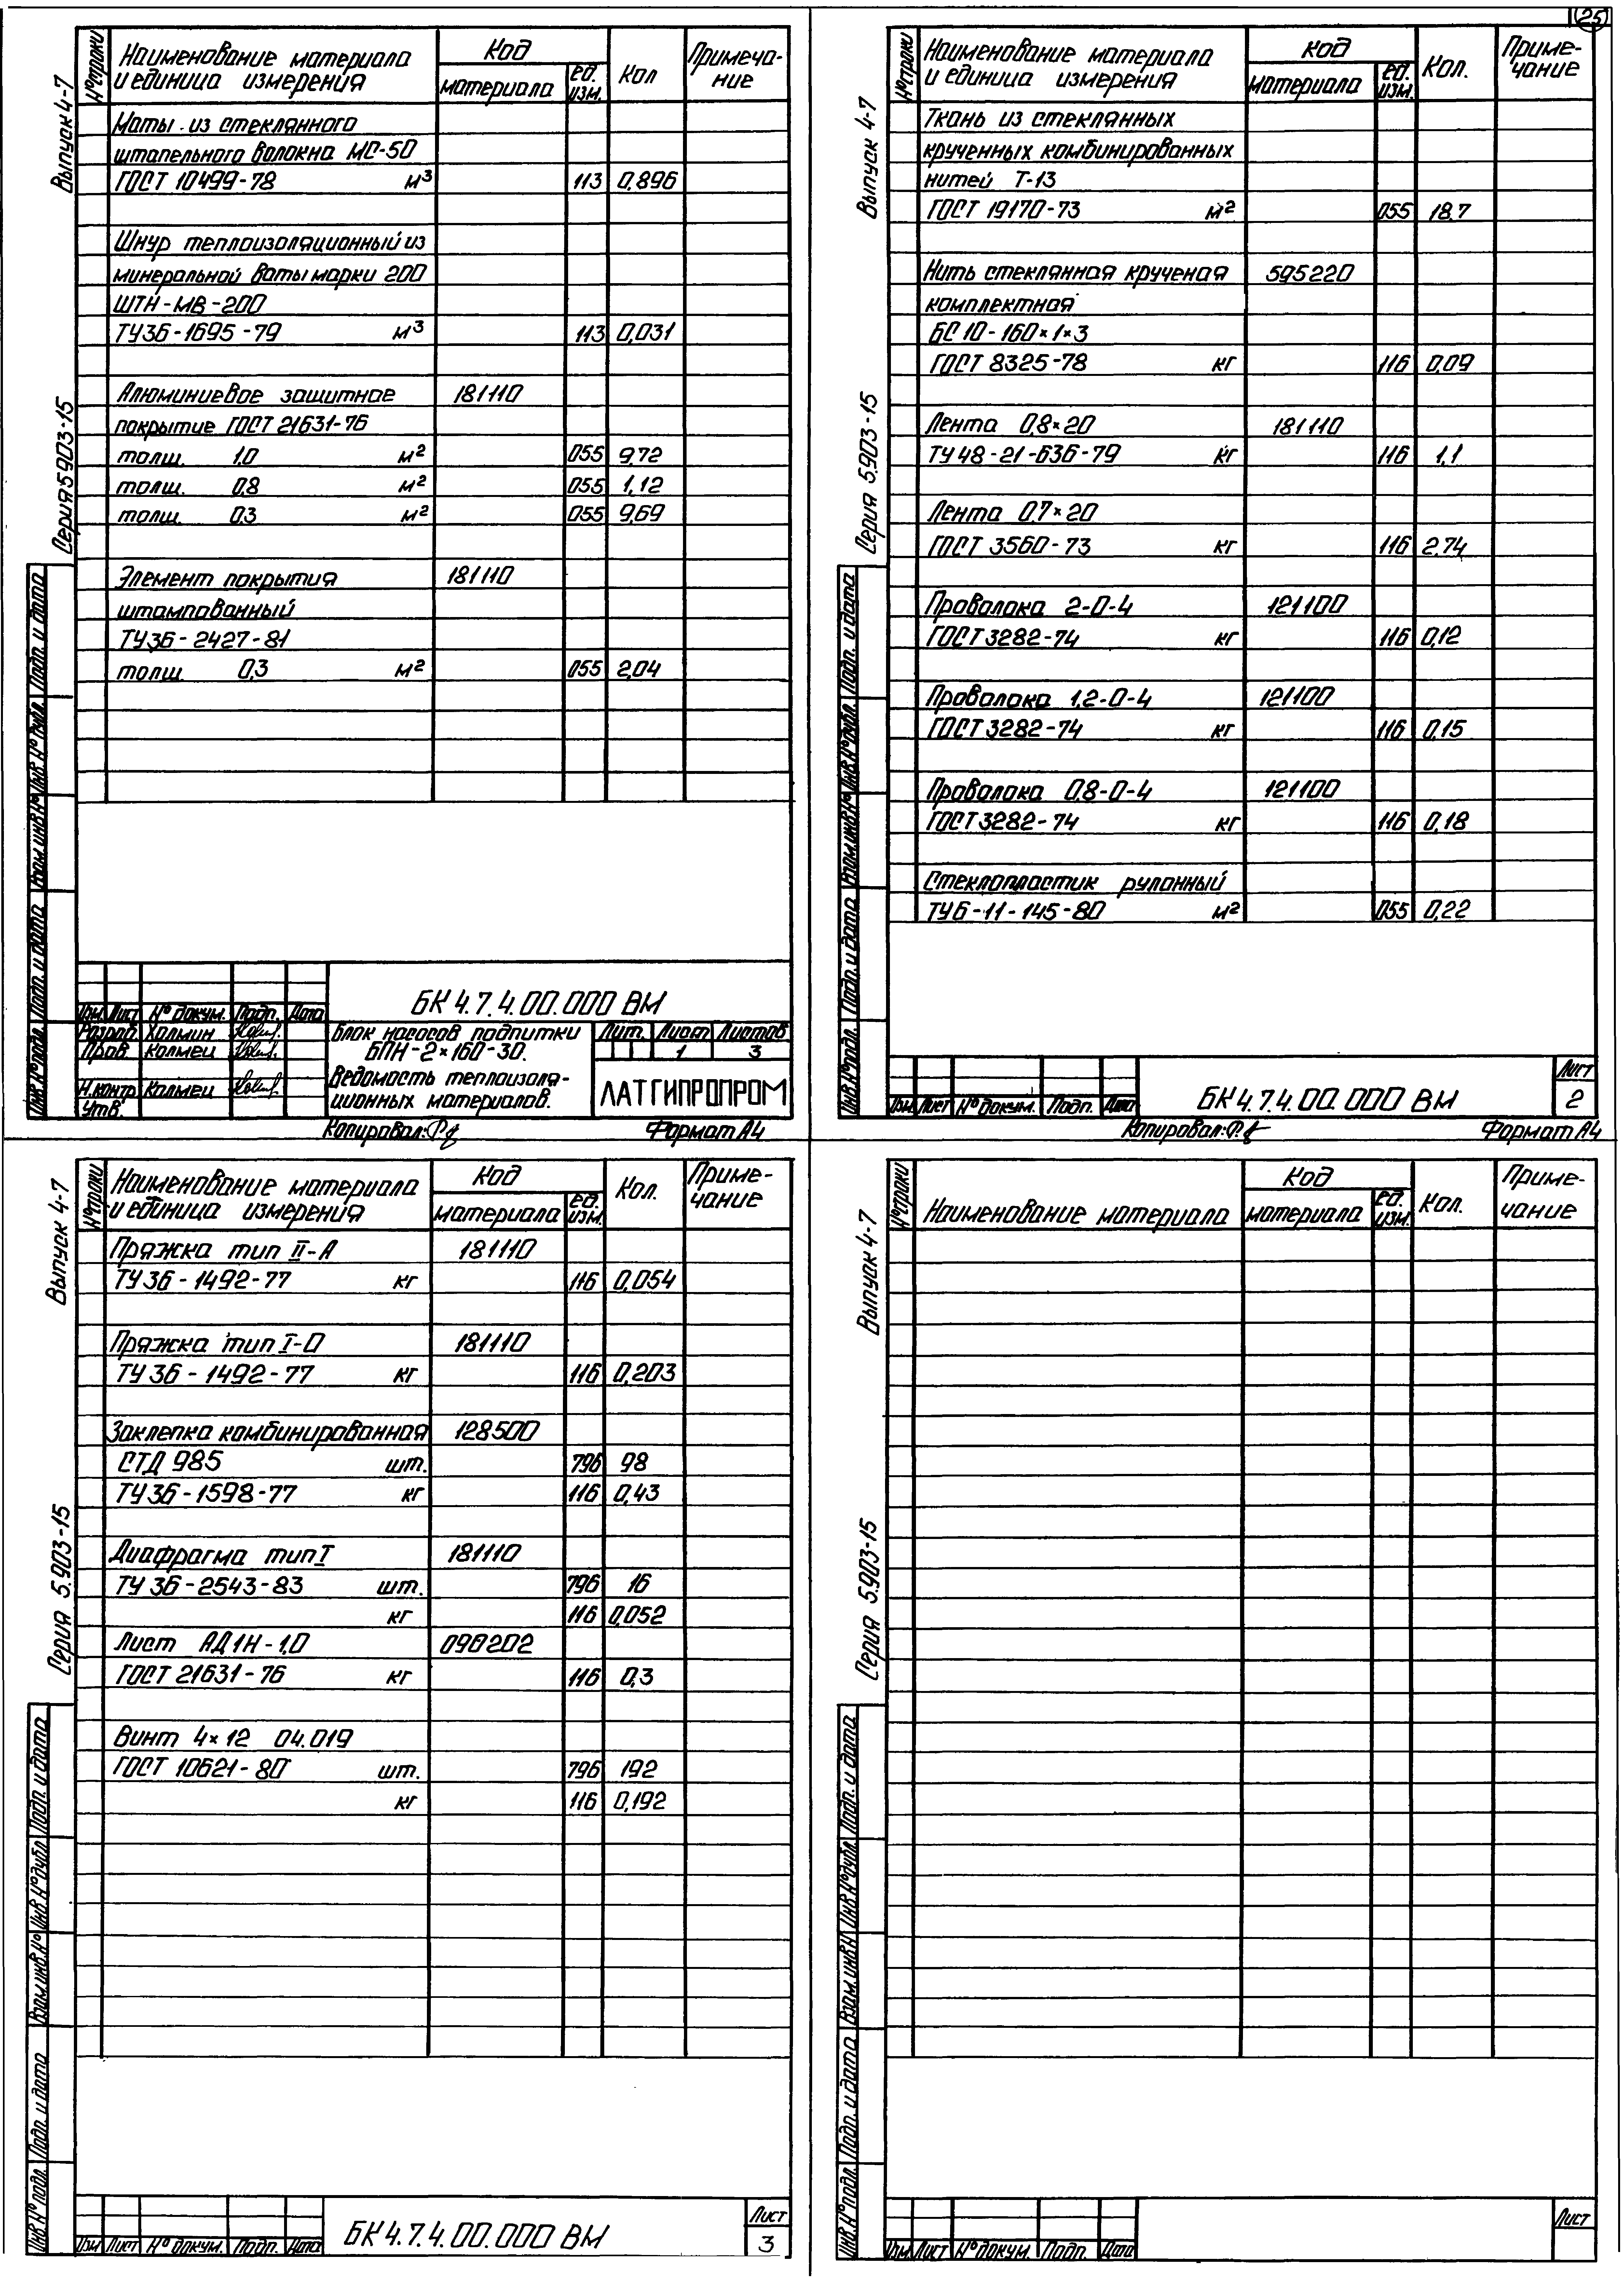 25
Выпуск 4-7
Серия 5.903-15
№ строки
Наименование материала и единица измерения
Код
материала
ед. изм.
Кол
Примеча-
ние
Маты из стеклянного
штапельного волокна МС-50
ГОСТ 10499-78 м³ 113 0,896
Шнур теплоизоляционный из
минеральной ваты марки 200
ШТН-МВ-200
ТУ36-1695-79 м³ 113 0,031
Алюминиевое защитное 181110
покрытие ГОСТ 21631-76
толщ. 1,0 м² 055 9,72
толщ. 0,8 м² 055 1,12
толщ. 0,3 м² 055 9,69
Элемент покрытия 181110
штампованный
ТУ36-2427-81
толщ. 0,3 м² 055 2,04
Инв.№ подл. Подп. и дата Взам.инв.№ Инв.№ дубл. Подп. и дата
Изм. Лист № докум. Подп. Дата
Разраб. Холмин
Пров. Калмец
Н.контр. Калмец
Утв.
БК 4.7.4.00.000 ВМ
Блок насосов подпитки
БПН-2×160-30.
Ведомость теплоизоля-
ционных материалов.
Лит. Лист Листов
1 3
ЛАТГИПРОПРОМ
Копировал:
Формат А4
Выпуск 4-7
Серия 5.903-15
№ строки
Наименование материала
и единица измерения
Код
материала
ед. изм.
Кол.
Приме-
чание
Ткань из стеклянных
крученных комбинированных
нитей Т-13
ГОСТ 19170-73 м² 055 18,7
Нить стеклянная крученая 595220
комплектная
БС 10-160×1×3
ГОСТ 8325-78 кг 116 0,09
Лента 0,8×20 181110
ТУ 48-21-636-79 кг 116 1,1
Лента 0,7×20
ГОСТ 3560-73 кг 116 2,74
Проволока 2-0-4 121100
ГОСТ 3282-74 кг 116 0,12
Проволока 1,2-0-4 121100
ГОСТ 3282-74 кг 116 0,15
Проволока 0,8-0-4 121100
ГОСТ 3282-74 кг 116 0,18
Стеклопластик рулонный
ТУ6-11-145-80 м² 055 0,22
Инв.№ подл. Подп. и дата Взам.инв.№ Инв.№ дубл. Подп. и дата
Изм. Лист № докум. Подп. Дата
БК 4.7.4.00.000 ВМ
Лист
2
Копировал:
Формат А4
Выпуск 4-7
Серия 5.903-15
№ строки
Наименование материала
и единица измерения
Код
материала
ед. изм.
Кол.
Приме-
чание
Пряжка тип II-А 181110
ТУ 36-1492-77 кг 116 0,054
Пряжка тип I-О 181110
ТУ 36-1492-77 кг 116 0,203
Заклепка комбинированная 128500
СТД 985 шт. 796 98
ТУ 36-1598-77 кг 116 0,43
Диафрагма тип I 181110
ТУ 36-2543-83 шт. 796 16
кг 116 0,052
Лист АД1Н-1,0 090202
ГОСТ 21631-76 кг 116 0,3
Винт 4×12 04.019
ГОСТ 10621-80 шт. 796 192
кг 116 0,192
Инв.№ подл. Подп. и дата Взам.инв.№ Инв.№ дубл. Подп. и дата
Изм. Лист № докум. Подп. Дата
БК 4.7.4.00.000 ВМ
Лист
3
Выпуск 4-7
Серия 5.903-15
№ строки
Наименование материала
Код
материала
ед. изм.
Кол.
Приме-
чание
Инв.№ подл. Подп. и дата Взам.инв.№ Инв.№ дубл. Подп. и дата
Изм. Лист № докум. Подп. Дата
Лист